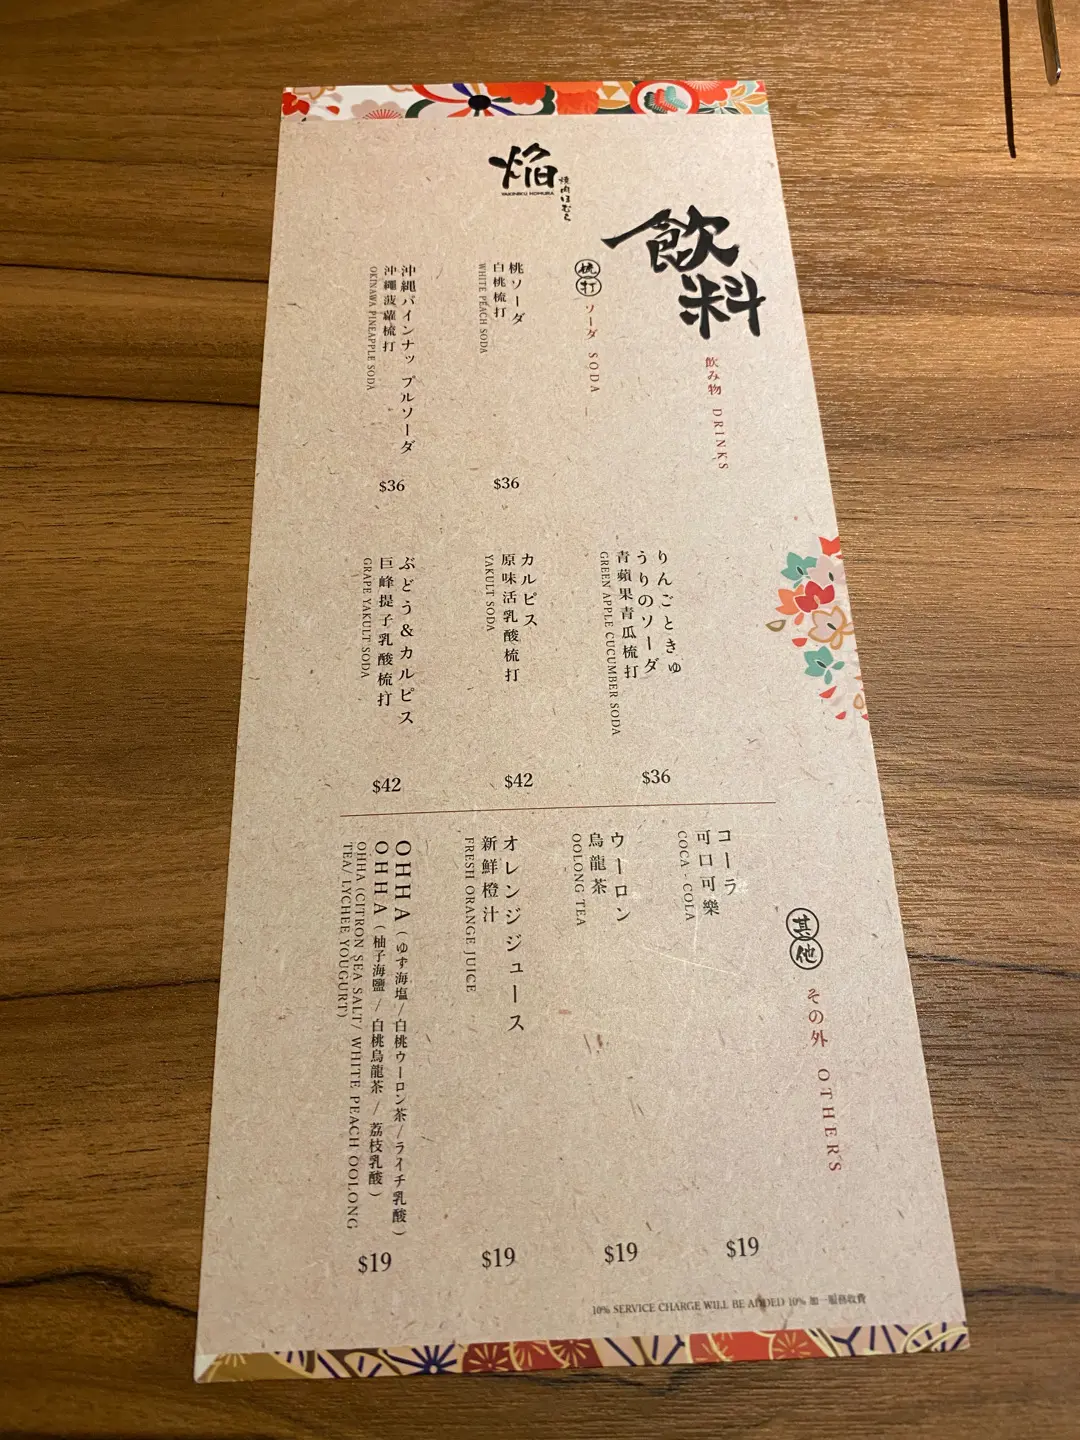 焔
YAKINIKU HOMURA
焼肉ほむら
飲料
飲み物 DRINKS
梳打 ソーダ SODA
桃ソーダ
白桃梳打
WHITE PEACH SODA
$36
沖縄パインナップルソーダ
沖繩菠蘿梳打
OKINAWA PINEAPPLE SODA
$36
りんごときゅ
うりのソーダ
青蘋果青瓜梳打
GREEN APPLE CUCUMBER SODA
$36
カルピス
原味活乳酸梳打
YAKULT SODA
$42
ぶどう&カルピス
巨峰提子乳酸梳打
GRAPE YAKULT SODA
$42
其他 その外 OTHERS
コーラ
可口可樂
COCA - COLA
$19
ウーロン
烏龍茶
OOLONG TEA
$19
オレンジジュース
新鮮橙汁
FRESH ORANGE JUICE
$19
OHHA(ゆず海塩/白桃ウーロン茶/ライチ乳酸)
OHHA(柚子海鹽 / 白桃烏龍茶 / 荔枝乳酸)
OHHA (CITRON SEA SALT/ WHITE PEACH OOLONG
TEA/ LYCHEE YOUGURT)
$19
10% SERVICE CHARGE WILL BE ADDED 10% 加一服務收費